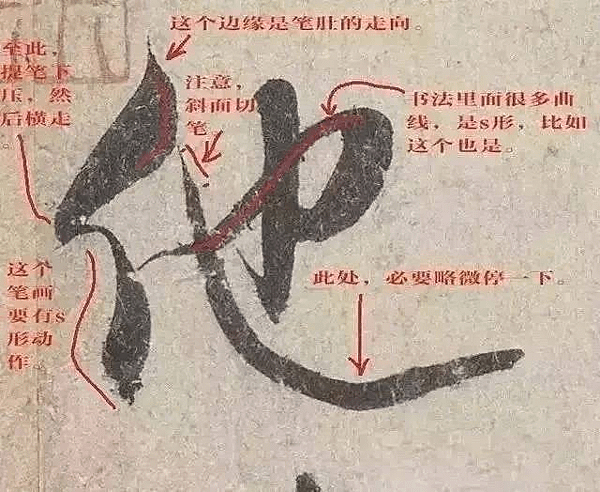 这个边缘是笔肚的走向。
至此，
提笔下
压，然
后横走
。
注意，
斜面切
笔
书法里面很多曲
线，是s形，比如
这个也是。
他
这个
笔画
要有s
形动
作。
此处，必要略微停一下。